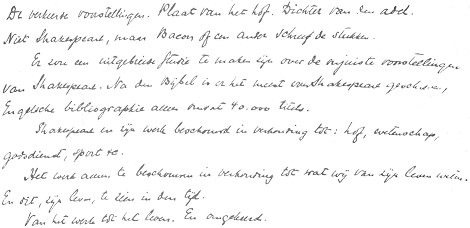 De verkeerde voorstellingen. Plaat van het hof. Dichter van den adel.
Niet Shakespeare, maar Bacon of een ander schreef de stukken.
Er zou een uitgebreide studie te maken zijn over de onjuiste voorstellingen
van Shakespeare. Na den Bijbel is er het meest van Shakespeare geschreven,
Engelsche bibliographie alleen omvat 40.000 titels.
Shakespeare en zijn werk beschouwd in verhouding tot: hof, wetenschap,
godsdienst, sport &c.
Het werk alleen te beschouwen in verhouding tot wat wij van zijn leven weten.
En dit, zijn leven, te zien in den tijd.
Van het werk tot het leven. En omgekeerd.